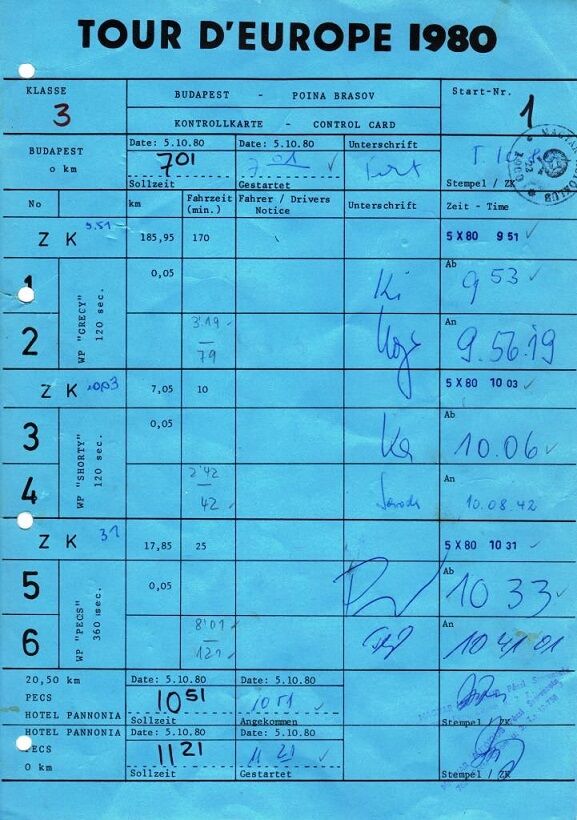 TOUR D'EUROPE 1980
KLASSE
3
BUDAPEST - POINA BRASOV
KONTROLLKARTE - CONTROL CARD
Start-Nr.
1
BUDAPEST
0 km
Date: 5.10.80
7 01
Sollzeit
Date: 5.10.80
7 01
Gestartet
Unterschrift
Stempel / ZK
No
km
Fahrzeit (min.)
Fahrer / Drivers Notice
Unterschrift
Zeit - Time
Z K 9.51
185,95
170
5 X 80 9 51
1
WP "GRECY"
120 sec.
0,05
Ab
9 53
2
3'19
79
An
9.56.19
Z K 10.03
7,05
10
5 X 80 10 03
3
WP "SHORTY"
120 sec.
0,05
Ab
10.06
4
2'42
42
An
10.08.42
Z K 31
17,85
25
5 X 80 10 31
5
WP "PECS"
360 sec.
0,05
Ab
10 33
6
8'01
121
An
10 41 01
20,50 km
PECS
HOTEL PANNONIA
Date: 5.10.80
10 51
Sollzeit
Date: 5.10.80
10 51
Angekommen
Stempel / ZK
HOTEL PANNONIA
PECS
0 km
Date: 5.10.80
11 21
Sollzeit
Date: 5.10.80
11 21
Gestartet
Stempel / ZK